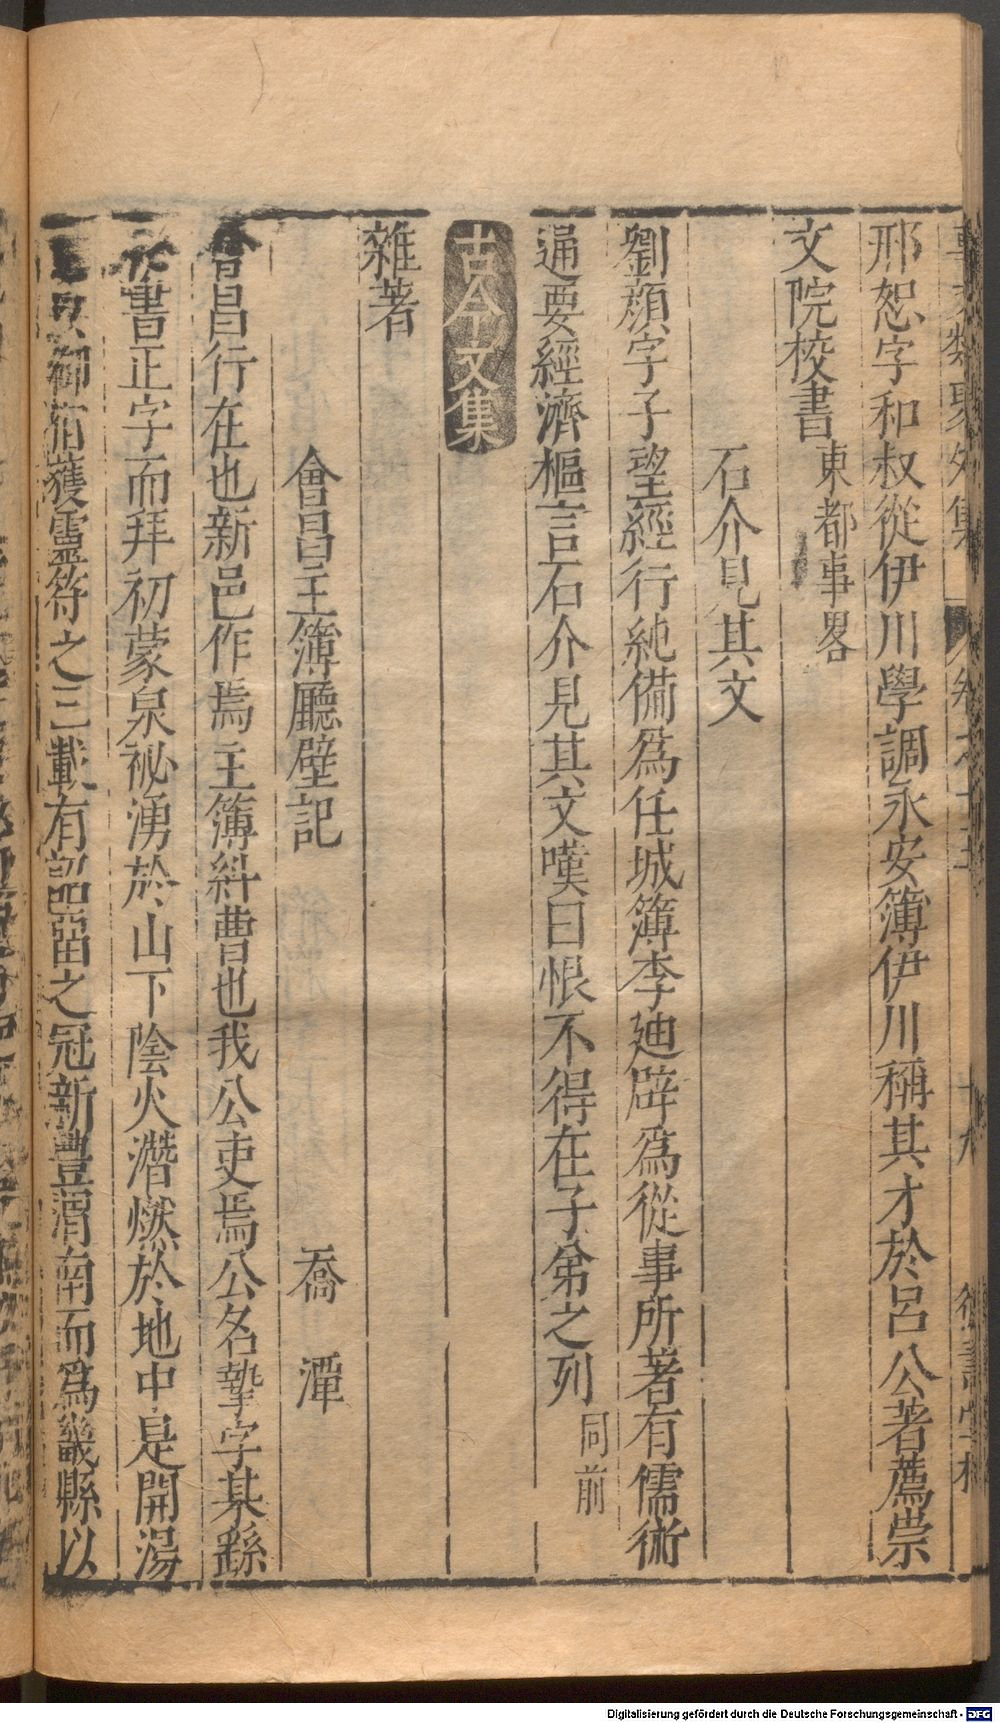 邢恕字和叔從伊川學調永安簿伊川稱其才於呂公著薦崇
文院校書 東都事畧
石介見其文
劉顔字子望經行純備爲任城簿李廸辟爲從事所著有儒術
通要經濟樞言石介見其文嘆曰恨不得在子弟之列 同前
古今文集
雜著
會昌主簿廳壁記 喬潭
會昌行在也新邑作焉主簿糾曹也我公吏焉公名摯字某繇
書正字而拜初蒙泉祕湧於山下陰火潛燃於地中是開湯
御宿獲靈符之三載有詔畱之冠新豊渭南而爲畿縣以
Digitalisierung gefördert durch die Deutsche Forschungsgemeinschaft - DFG